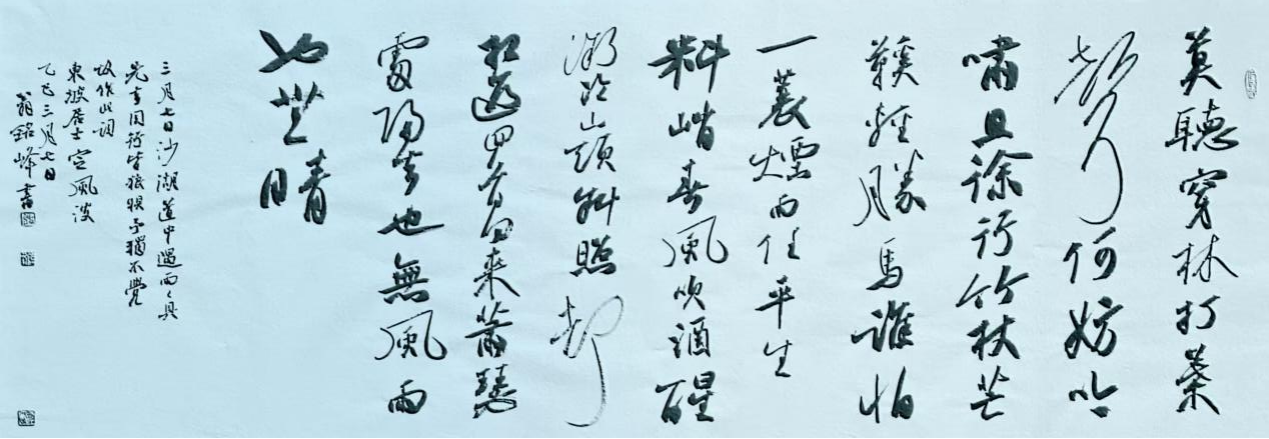 莫聽穿林打葉
聲何妨吟
嘯且徐行竹杖芒
鞵輕勝馬誰怕
一蓑煙雨任平生
料峭春風吹酒醒
微冷山頭斜照却
相迎回首向来蕭瑟
處歸去也無風雨
也無晴
三月七日沙湖道中遇雨々具
先去同行皆狼狽予獨不覺
故作此詞
東坡居士定風波
乙巳三月七日
翁銘峰書